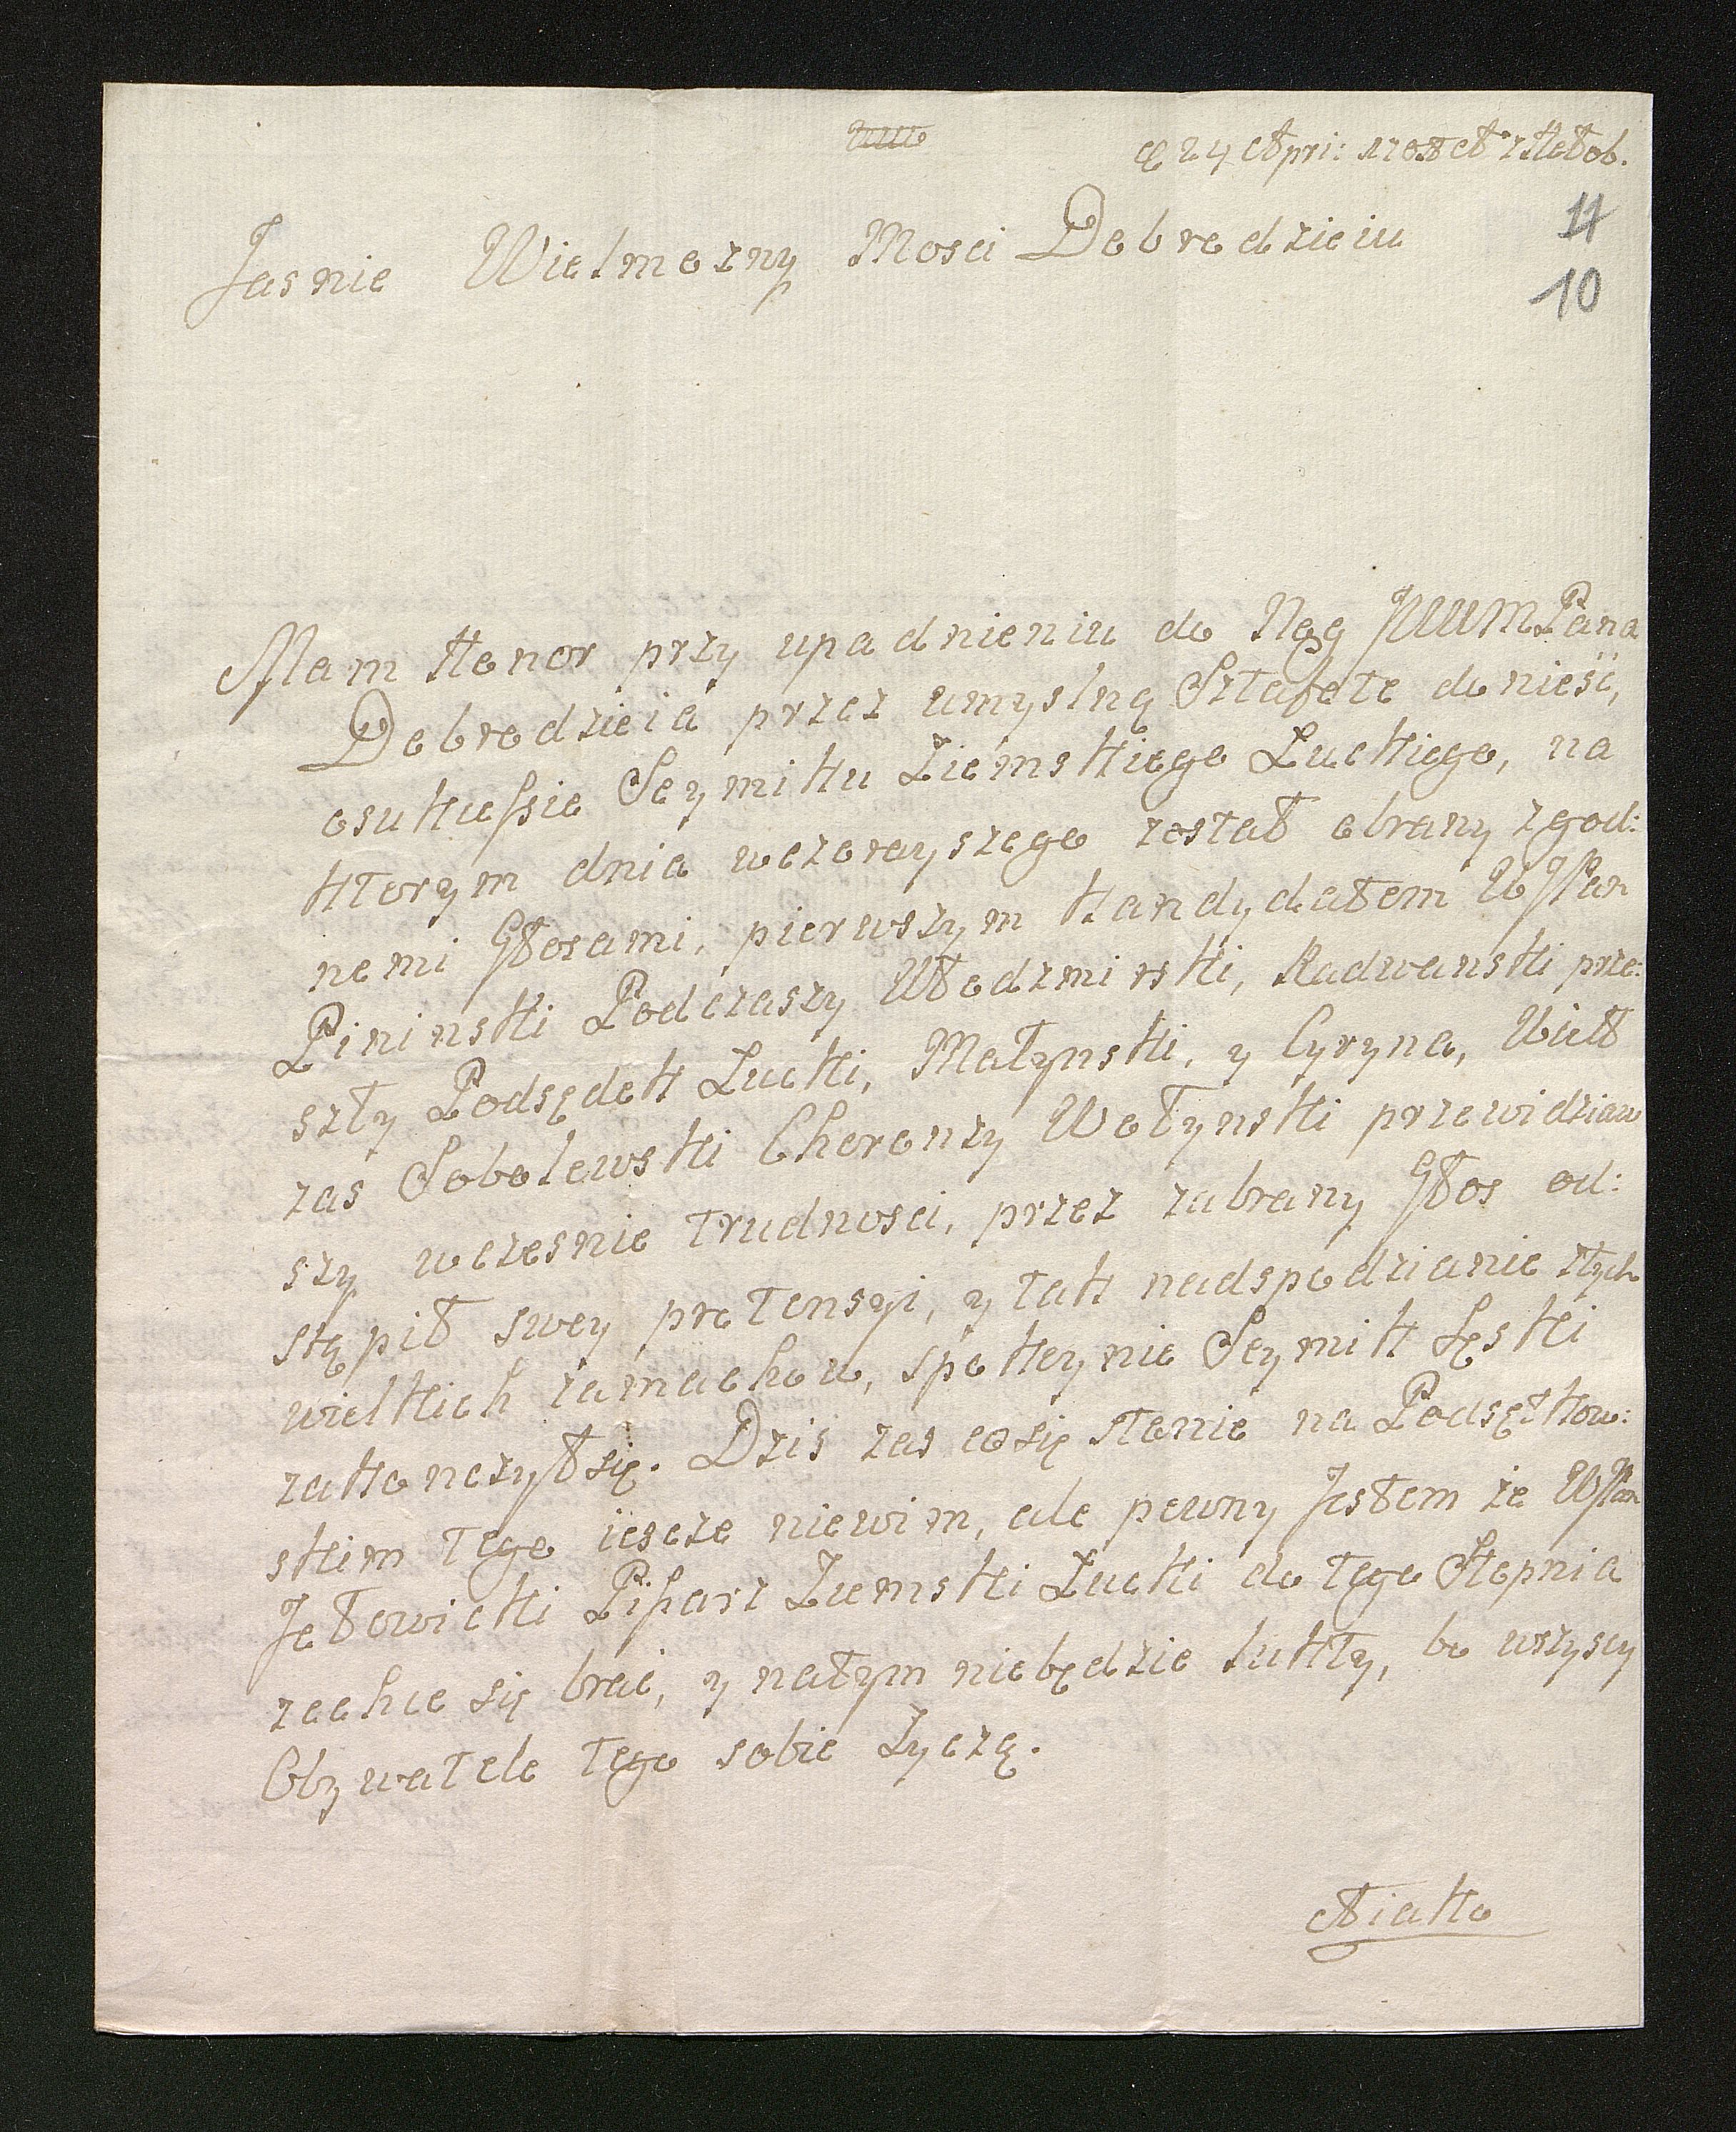 11
10
Jasnie Wielmozny Mosci Dobrodzieiu
Mam Honor przy upadnieniu do Nog JWWMPana
Dobrodzieia przez umyslną Sztafete doniesć,
osukcessie Seymiku Ziemskiego Luckiego, na
ktorym dnia wczorayszego został obrany zgod:
nemi Głosami, pierwszym Kandydatem WJPan
Pininski Podczaszy Włodzmirski, Radwanski prze:
szły Podsędek Lucki, Małynski, y Cyryna, Wielb
zas Sobolewski Choronzy Wołynski przewidziaw
szy wczesnie trudnosci, przez zabrany Głos od:
stąpił swey pretensyi, y tak nadspodzianie ztych
wielkich zamachow, spokoynie Seymik Łęski
zakonczył się. Dzis zas cosię stonie na Podsętkow:
skim tego iescze niewim, ale pewny Jestem ze WJPan
Jełowicki Pisarz Ziemski Lucki do tego Stopnia
zechce się brać, y natym niebędzie lukty, bo wszyscy
Obywatele tego sobie Zyczą.